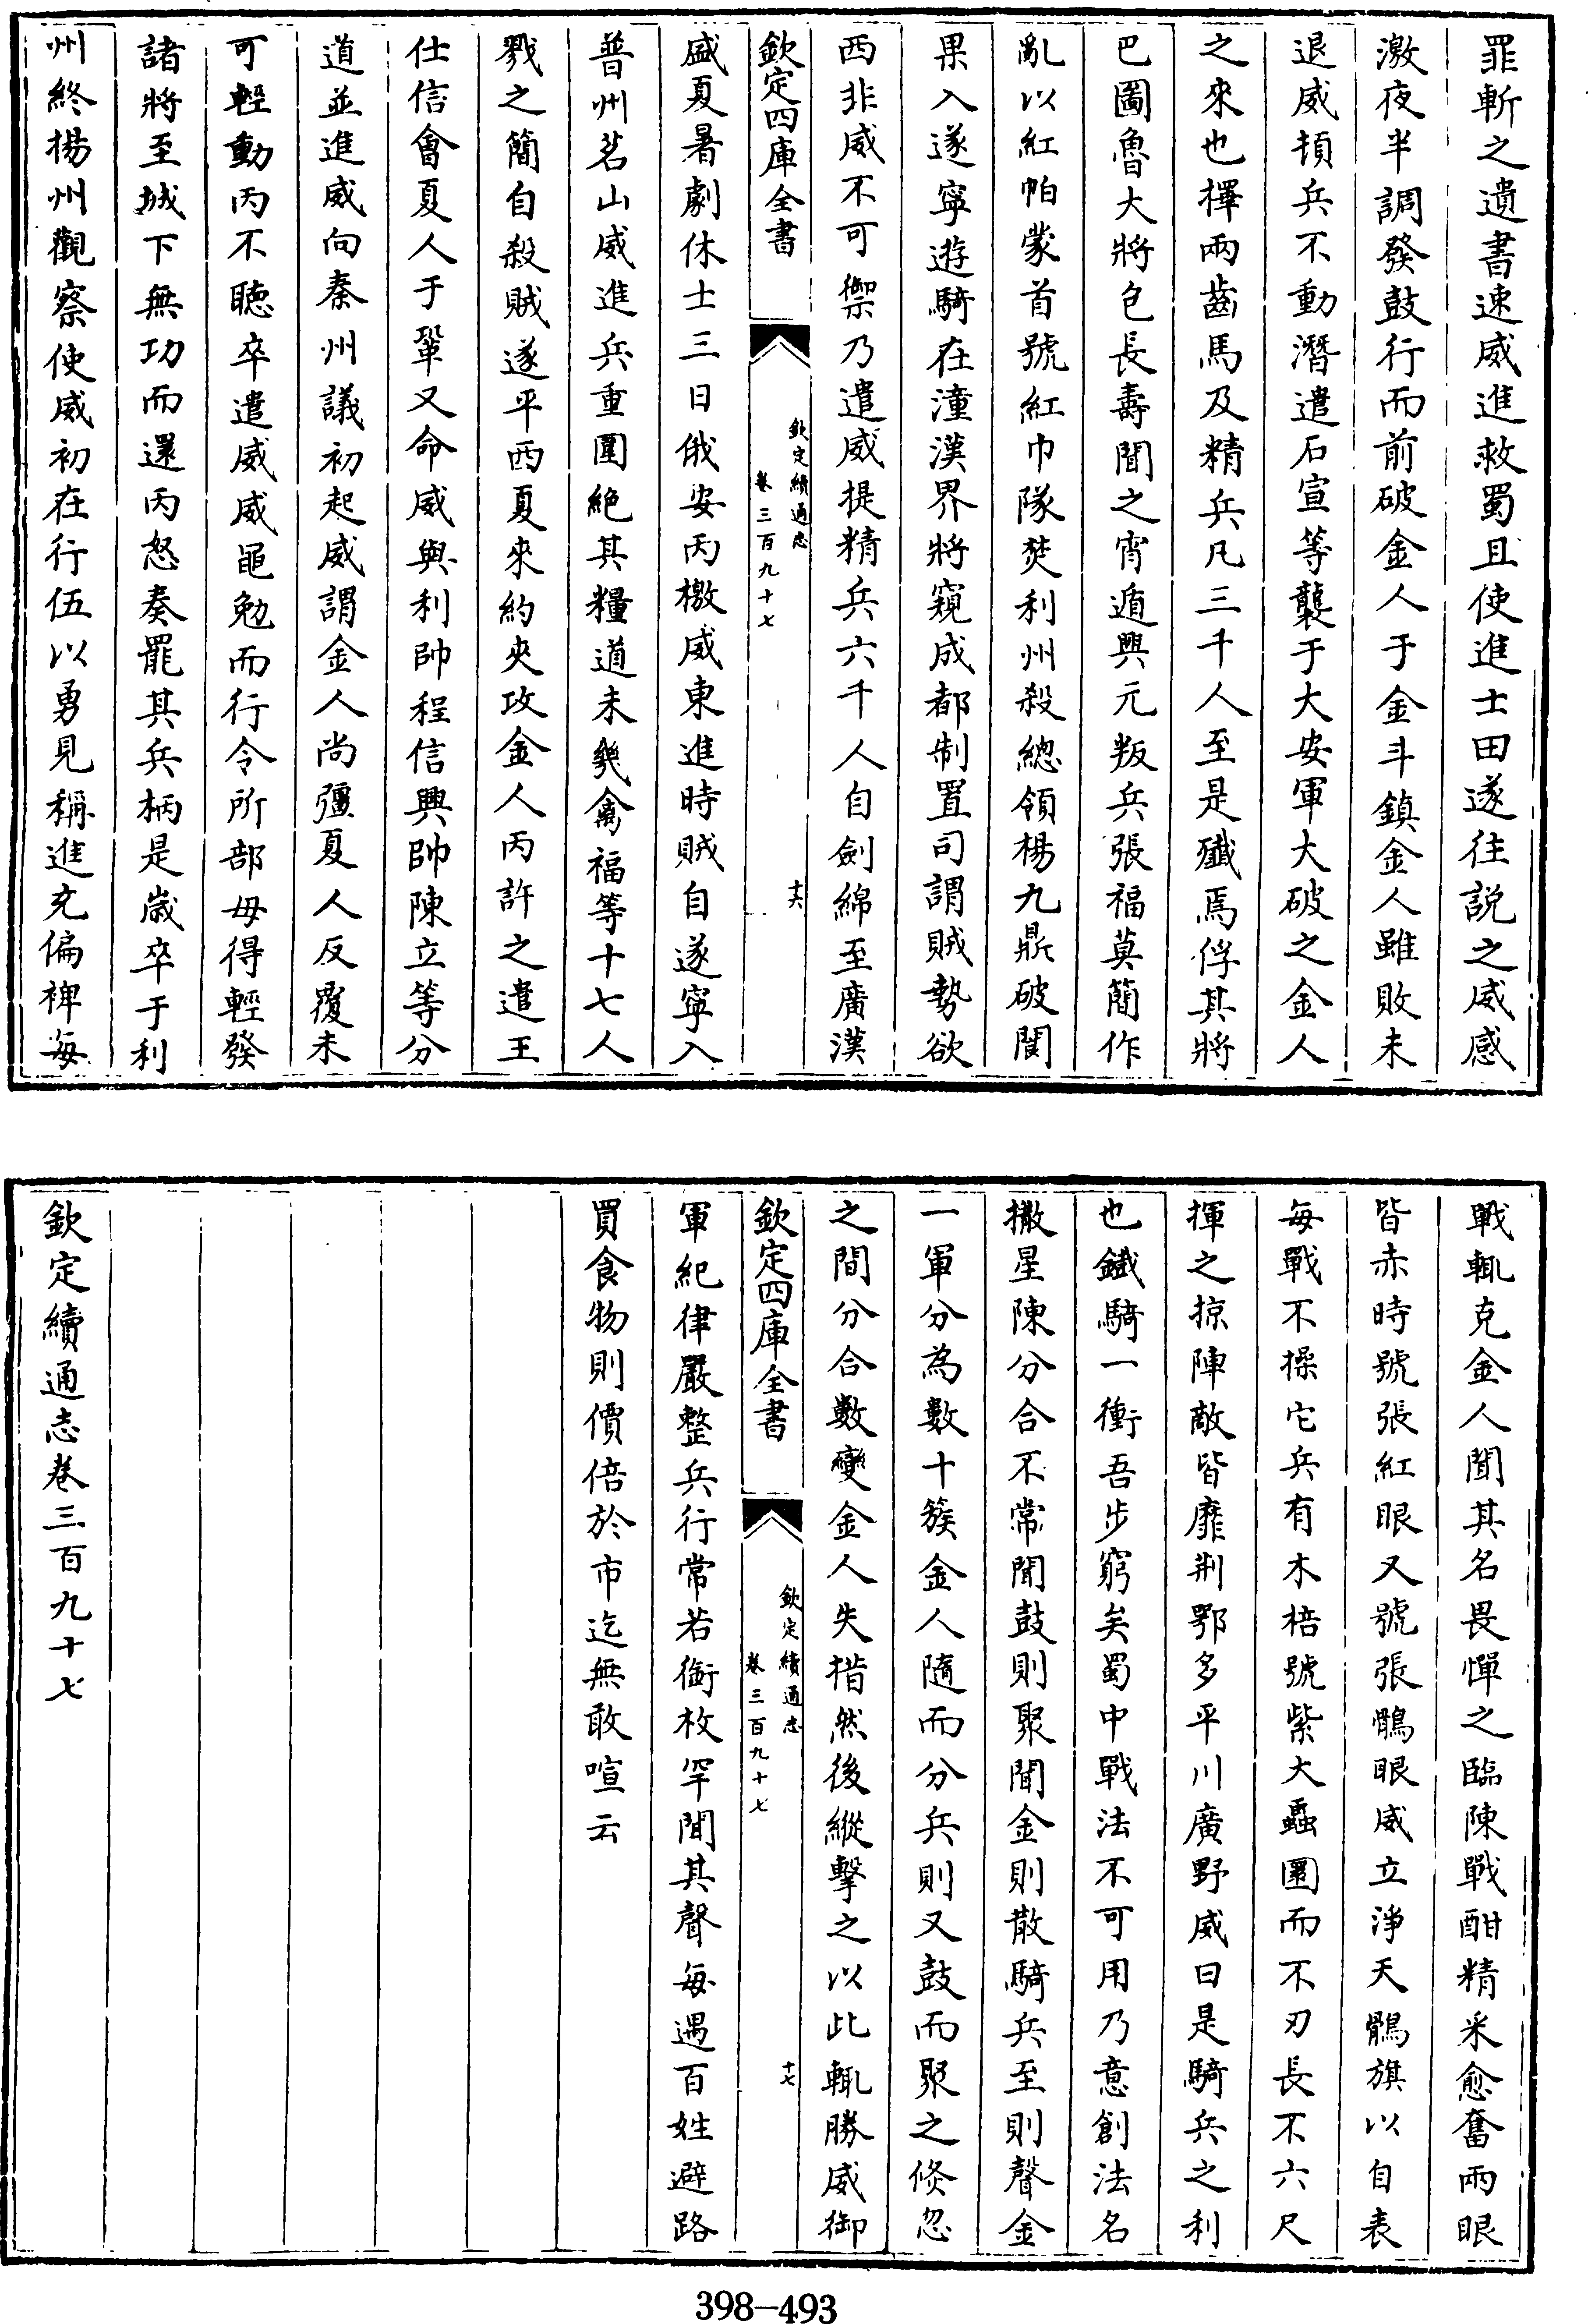 罪斬之遺書速威進救蜀且使進士田遂往説之威感
激夜半調發鼓行而前破金人于金斗鎮金人雖敗未
退威頓兵不動潛遣石宣等襲于大安軍大破之金人
之來也擇兩齒馬及精兵凡三千人至是殱焉俘其將
巴圖魯大將包長壽聞之宵遁興元叛兵張福莫簡作
亂以紅帕蒙首號紅巾隊焚利州殺總領楊九鼎破閬
果入遂寧遊騎在潼漢界將窺成都制置司謂賊勢欲
西非威不可禦乃遣威提精兵六千人自劍綿至廣漢
欽定四庫全書
欽定續通志
卷三百九十七
十六
盛夏暑劇休士三日俄安丙檄威東進時賊自遂寧入
普州茗山威進兵重圍絶其糧道未幾禽福等十七人
戮之簡自殺賊遂平西夏來約夾攻金人丙許之遣王
仕信會夏人于鞏又命威與利帥程信興帥陳立等分
道並進威向秦州議初起威謂金人尚彊夏人反覆未
可輕動丙不聽卒遣威威黽勉而行令所部毋得輕發
諸將至城下無功而還丙怒奏罷其兵柄是歲卒于利
州終揚州觀察使威初在行伍以勇見稱進充偏裨每
戰輒克金人聞其名畏憚之臨陳戰酣精采愈奮兩眼
皆赤時號張紅眼又號張鶻眼威立淨天鶻旗以自表
每戰不操它兵有木棓號紫大蟲圜而不刃長不六尺
揮之掠陣敵皆靡荆鄂多平川廣野威曰是騎兵之利
也鐵騎一衝吾步窮矣蜀中戰法不可用乃意創法名
撒星陳分合不常聞鼓則聚聞金則散騎兵至則聲金
一軍分為數十簇金人隨而分兵則又鼓而聚之倐忽
之間分合數變金人失措然後縱擊之以此輒勝威御
欽定四庫全書
欽定續通志
卷三百九十七
十七
軍紀律嚴整兵行常若銜枚罕聞其聲每遇百姓避路
買食物則價倍於市迄無敢喧云
欽定續通志卷三百九十七
398-493